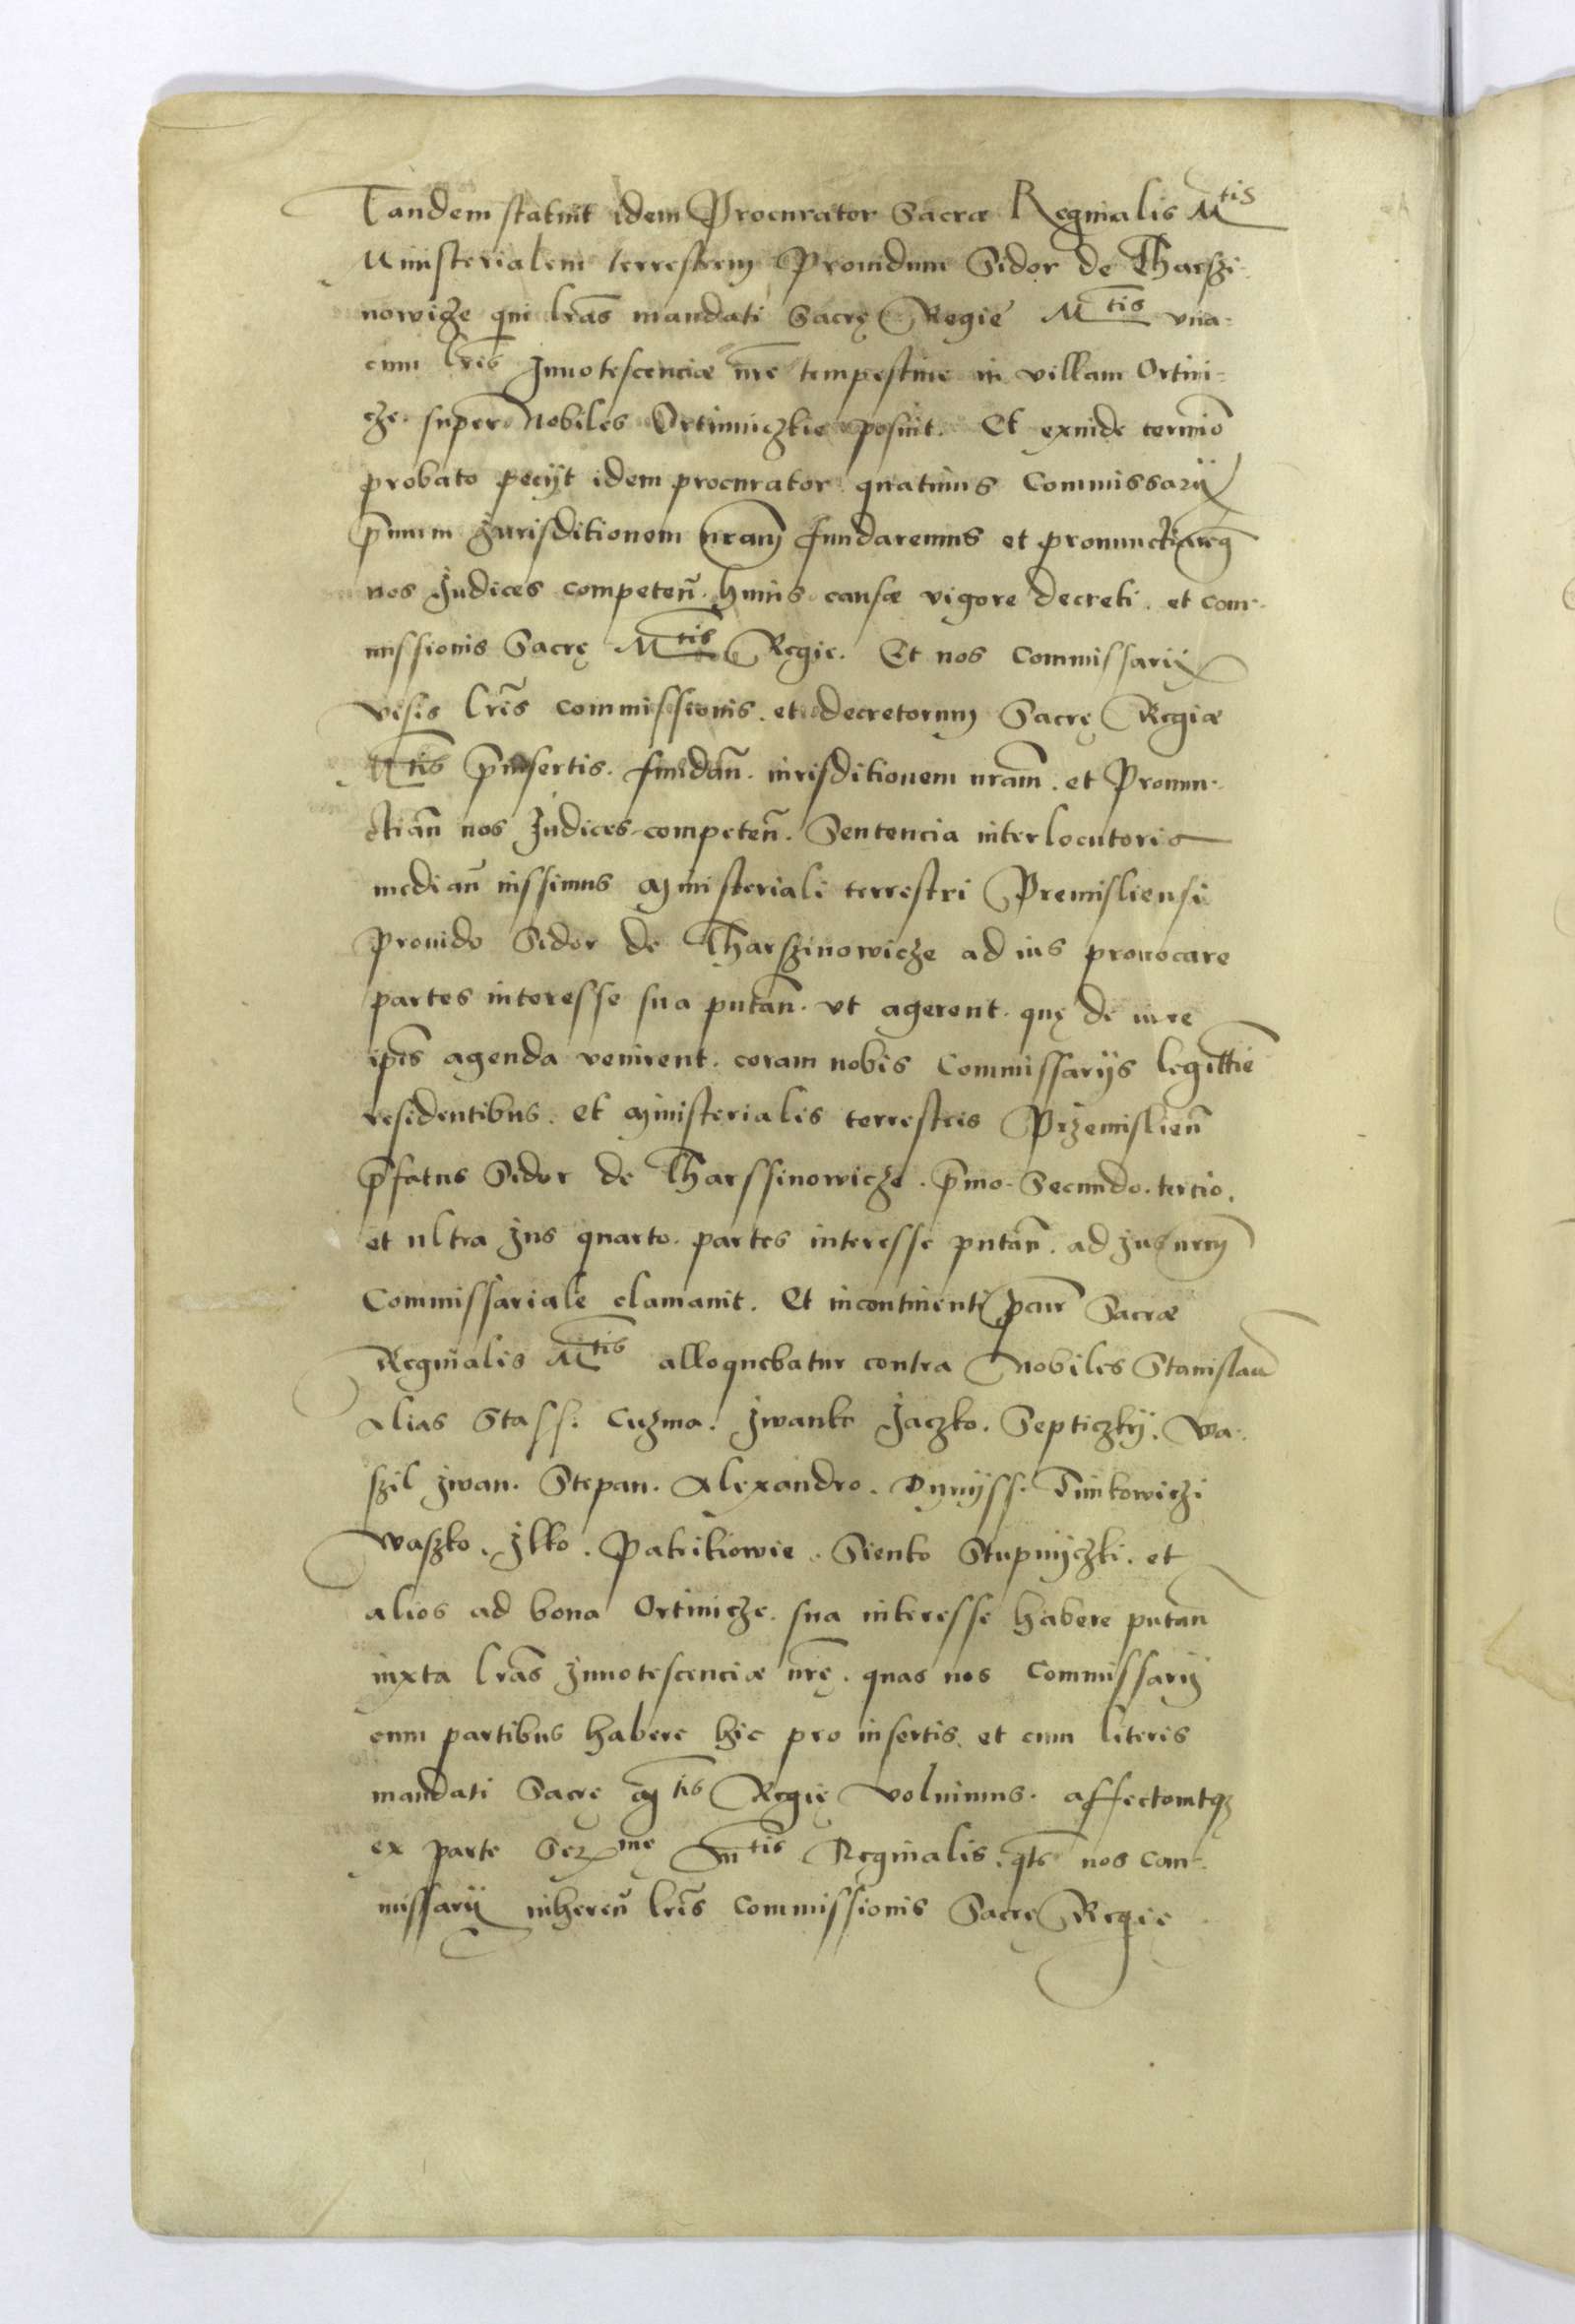 Tandem statuit idem Procurator Sacræ Reginalis M^tis
Ministerialem terrestrem Prouidum Sidor de Tharszi-
nowicze qui lr̃as mandati Sacrę Regie M^tis vna-
cum lr̃is Innotescenciæ nr̃e tempestiue in villam Ortini-
cze. super Nobiles Ortinniczkie posuit. Et exinde termĩo
probato peciyt idem procurator quatinus Commissarij
p̃mum Jurisditionem nr̃am fundaremus et pronunctiareq̃
nos Judices competeñ. huius causæ vigore decreti. et com-
missionis Sacrę M^tis Regie. Et nos Commissarij
visis lr̃is commissionis. et decretorum Sacrę Regiæ
M^tis p̃insertis. fundañ. iurisditionem nr̃am. et Pronun-
ctiañ nos Judices competeñ. Sentencia interlocutoria
mediañ iussimus ministeriali terrestri Premisliensi
Prouido Sidor de Tharszinowicze ad ius prouocare
partes interesse sua putañ. vt agerent. quę de iure
ip̃is agenda venirent. coram nobis Commissarijs legittĩe
residentibus. et ministerialis terrestris Przemislieñ
p̃fatus Sidor de Tharssinowicze. p̃mo. Secundo. tertio.
et ultra Jus quarto. partes interesse putañ. ad Jus nr̃m
Commissariale clamauit. Et incontinenti pcur̃ Sacræ
Reginalis M^tis alloquebatur contra Nobiles Stanislaũ
alias Stass. Cuzma. Jwanko Jaczko. Septiczkÿ. Wa-
szil Jwan. Stepan. Alexandro. Dymyss. Timkowiczi
Waszko. Jlko. Patrikiowie. Sienko Stupnyczki. et
alios ad bona Ortinicze. sua interesse habere putañ
iuxta lr̃as Innotescenciæ nr̃ę. quas nos Commissarij
cum partibus habere hic pro insertis. et cum literis
mandati Sacrę M^tis Regię voluimus. affectomtqz
ex parte Ser^mę M^tis Reginalis. qts̃ nos Com-
missarij inhereñ lr̃is Commissionis Sacrę Regię